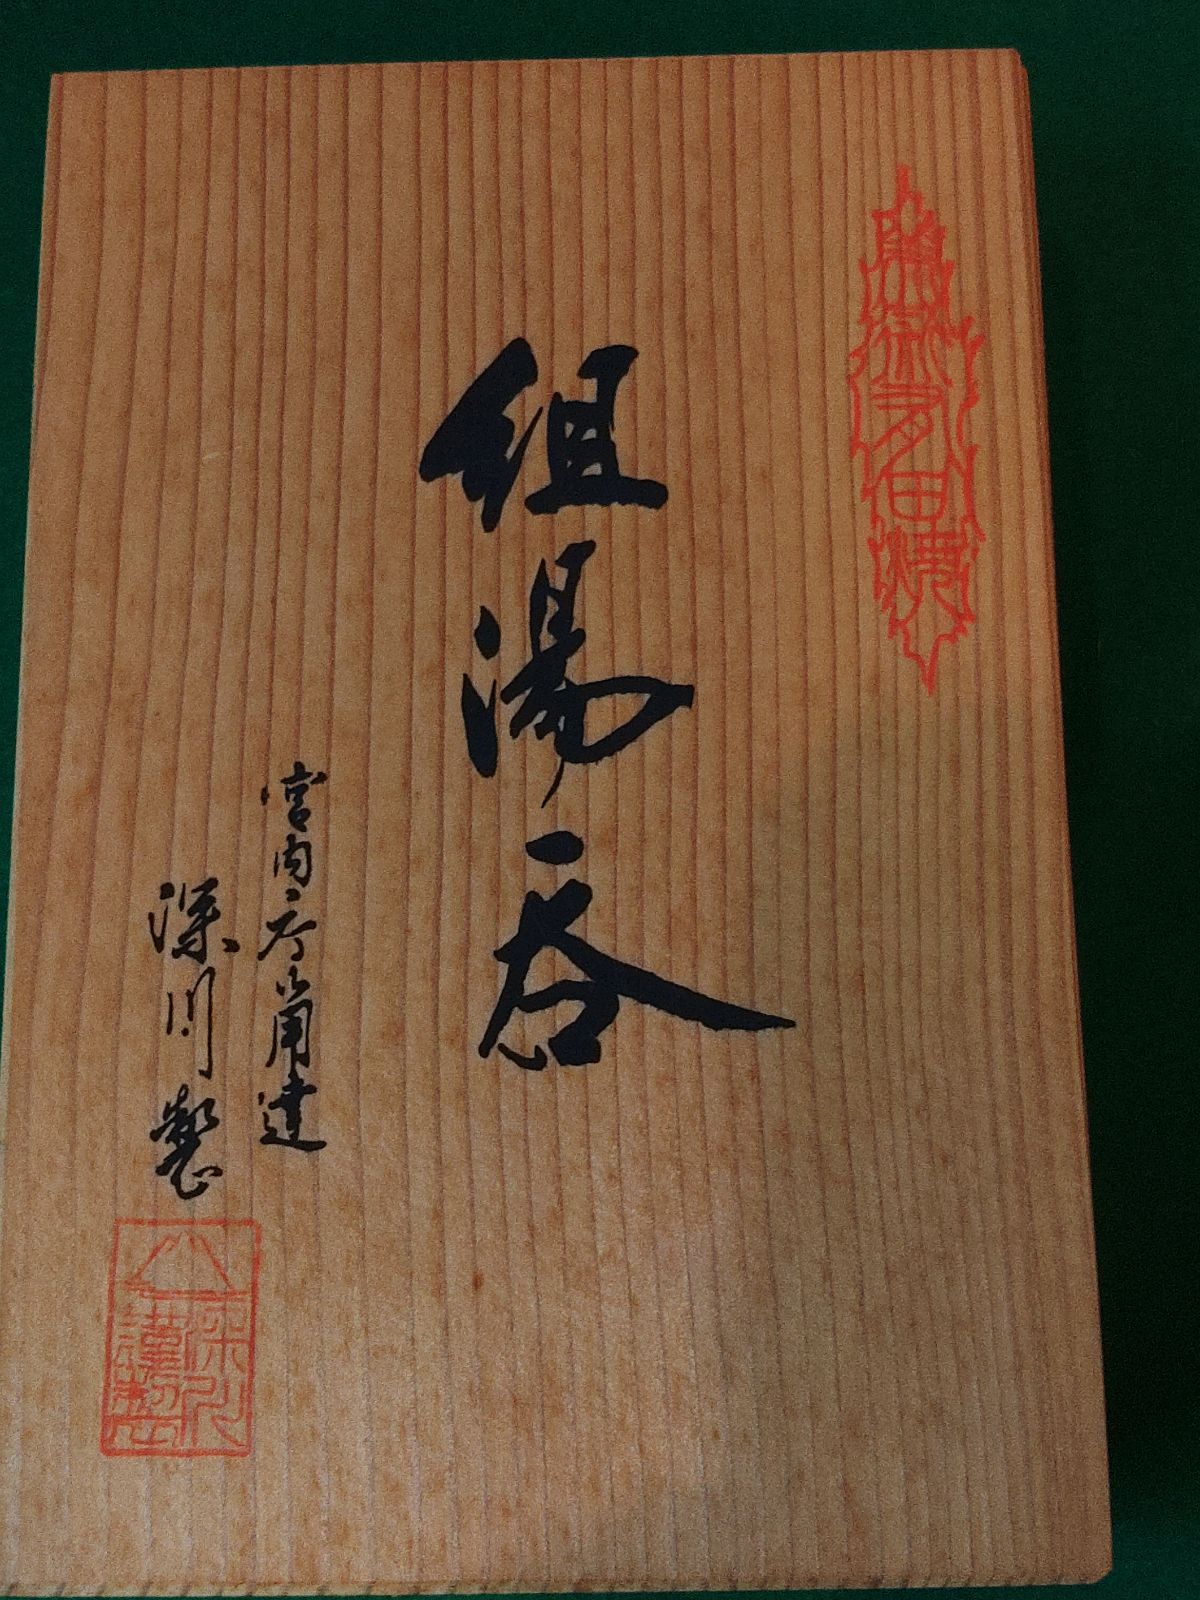 蘭嶽有田焼
組湯呑
宮内庁御用達
深川製
深川
謹製